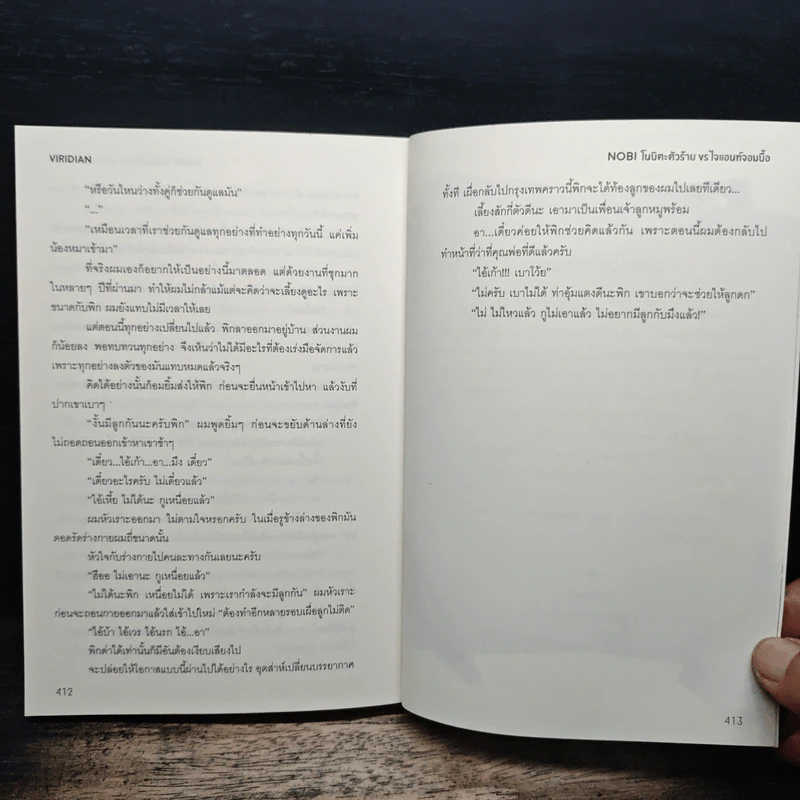 VIRIDIAN
“หรือวันไหนว่างทั้งคู่ก็ช่วยกันดูแลมัน”
“...”
“เหมือนเวลาที่เราช่วยกันดูแลทุกอย่างที่ทำอย่างทุกวันนี้ แค่เพิ่ม
น้องหมาเข้ามา”
ที่จริงผมเองก็อยากให้เป็นอย่างนี้มาตลอด แต่ด้วยงานที่ชุกมาก
ในหลายๆ ปีที่ผ่านมา ทำให้ผมไม่กล้าแม้แต่จะคิดว่าจะเลี้ยงดูอะไร เพราะ
ขนาดกับพิก ผมยังแทบไม่มีเวลาให้เลย
แต่ตอนนี้ทุกอย่างเปลี่ยนไปแล้ว พิกลาออกมาอยู่บ้าน ส่วนงานผม
ก็น้อยลง พอทบทวนทุกอย่าง จึงเห็นว่าไม่ได้มีอะไรที่ต้องเร่งมือจัดการแล้ว
เพราะทุกอย่างลงตัวของมันแทบหมดแล้วจริงๆ
คิดได้อย่างนั้นก็อมยิ้มส่งให้พิก ก่อนจะยื่นหน้าเข้าไปหา แล้วงับที่
ปากเขาเบาๆ
“งั้นมีลูกกันนะครับพิก” ผมพูดยิ้มๆ ก่อนจะขยับด้านล่างที่ยัง
ไม่ถอดถอนออกเข้าหาเขาช้าๆ
“เดี๋ยว...ไอ้เก้า...อา...มึง เดี๋ยว”
“เดี๋ยวอะไรครับ ไม่เดี๋ยวแล้ว”
“ไอ้เหี้ย ไม่ได้นะ กูเหนื่อยแล้ว”
ผมหัวเราะออกมา ไม่ตามใจหรอกครับ ในเมื่อรูข้างล่างของพิกมัน
ตอดรัดร่างกายผมถี่ขนาดนั้น
หัวใจกับร่างกายไปคนละทางกันเลยนะครับ
“ฮืออ ไม่เอานะ กูเหนื่อยแล้ว”
“ไม่ได้นะพิก เหนื่อยไม่ได้ เพราะเรากำลังจะมีลูกกัน” ผมหัวเราะ
ก่อนจะถอนกายออกมาแล้วใส่เข้าไปใหม่ “ต้องทำอีกหลายรอบเผื่อลูกไม่ติด”
“ไอ้บ้า ไอ้เวร ไอ้นรก ไอ้...อา”
พิกด่าได้เท่านั้นก็มีอันต้องเงียบเสียงไป
จะปล่อยให้โอกาสแบบนี้ผ่านไปได้อย่างไร อุตส่าห์เปลี่ยนบรรยากาศ
412
NOBI โนบิตะตัวร้าย ขรไจแอนท์จอมบื้อ
ทั้งที เผื่อกลับไปกรุงเทพคราวนี้พิกจะได้ท้องลูกของผมไปเลยทีเดียว...
เลี้ยงสักกี่ตัวดีนะ เอามาเป็นเพื่อนเจ้าลูกหมูพร้อม
อา...เดี๋ยวค่อยให้พิกช่วยคิดแล้วกัน เพราะตอนนี้ผมต้องกลับไป
ทำหน้าที่ว่าที่คุณพ่อที่ดีแล้วครับ
“ไอ้เก้า!!! เบาโว้ย”
“ไม่ครับ เบาไม่ได้ ท่าอุ้มแตงดีนะพิก เขาบอกว่าจะช่วยให้ลูกดก”
“ไม่ ไม่ไหวแล้ว กูไม่เอาแล้ว ไม่อยากมีลูกกับมึงแล้ว!”
413